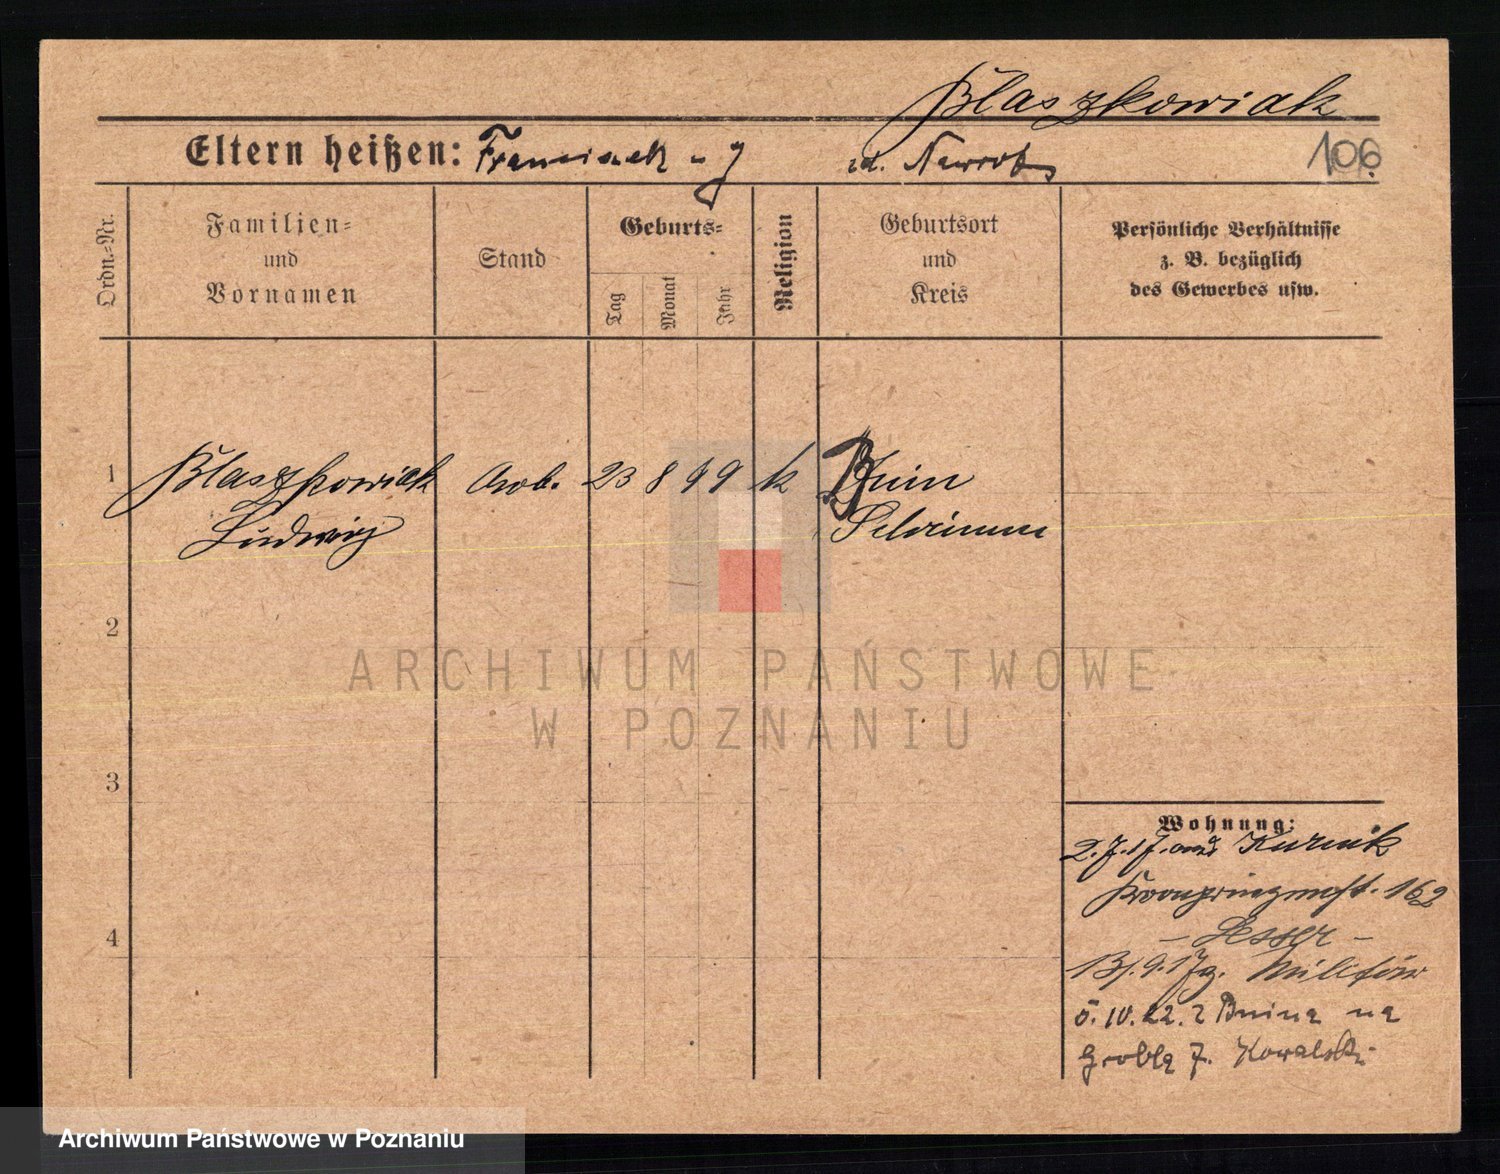 Blaszkowiak
Eltern heißen: Franciszek u J id. Nawrot
106
Ordn.-Nr.
Familien-
und
Vornamen
Stand
Geburts-
Tag
Monat
Jahr
Religion
Geburtsort
und
Kreis
Persönliche Verhältnisse
z. B. bezüglich
des Gewerbes usw.
1
Blaszkowiak Arb. 23 8 99 k Bnin
Ludwig Schrimm
2
3
4
Wohnung:
2.7.17. aus Kurnik
Kronprinzenst. 162
- Lesser -
13/.9.17 z. Militär
5.10.22. z Bnina na
Groblą 7. Kowalski
ARCHIWUM PAŃSTWOWE
W POZNANIU
Archiwum Państwowe w Poznaniu